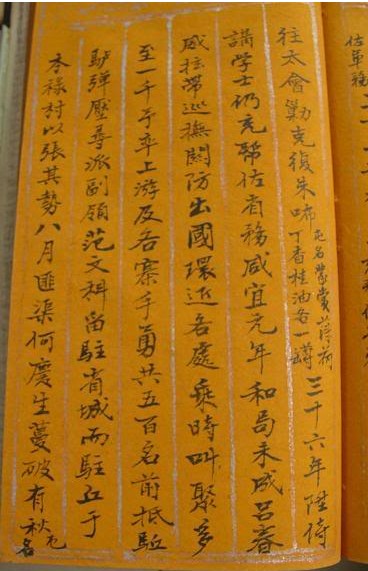 佐軍務
往太會勦克復朱咘屯名蒙賞丁香桂油各一罇三十六年陞侍
講學士仍充幫佐省務咸宜元年和局未成呂春
威拄帶巡撫關防出國環近各處乘時叫聚多
至一千率上游及各寨手勇共五百名前抵駈
馿彈壓尋派副領范文科留駐省城而駐丘于
祿村以張其勢八月匪渠何慶生蔓破有秋屯名